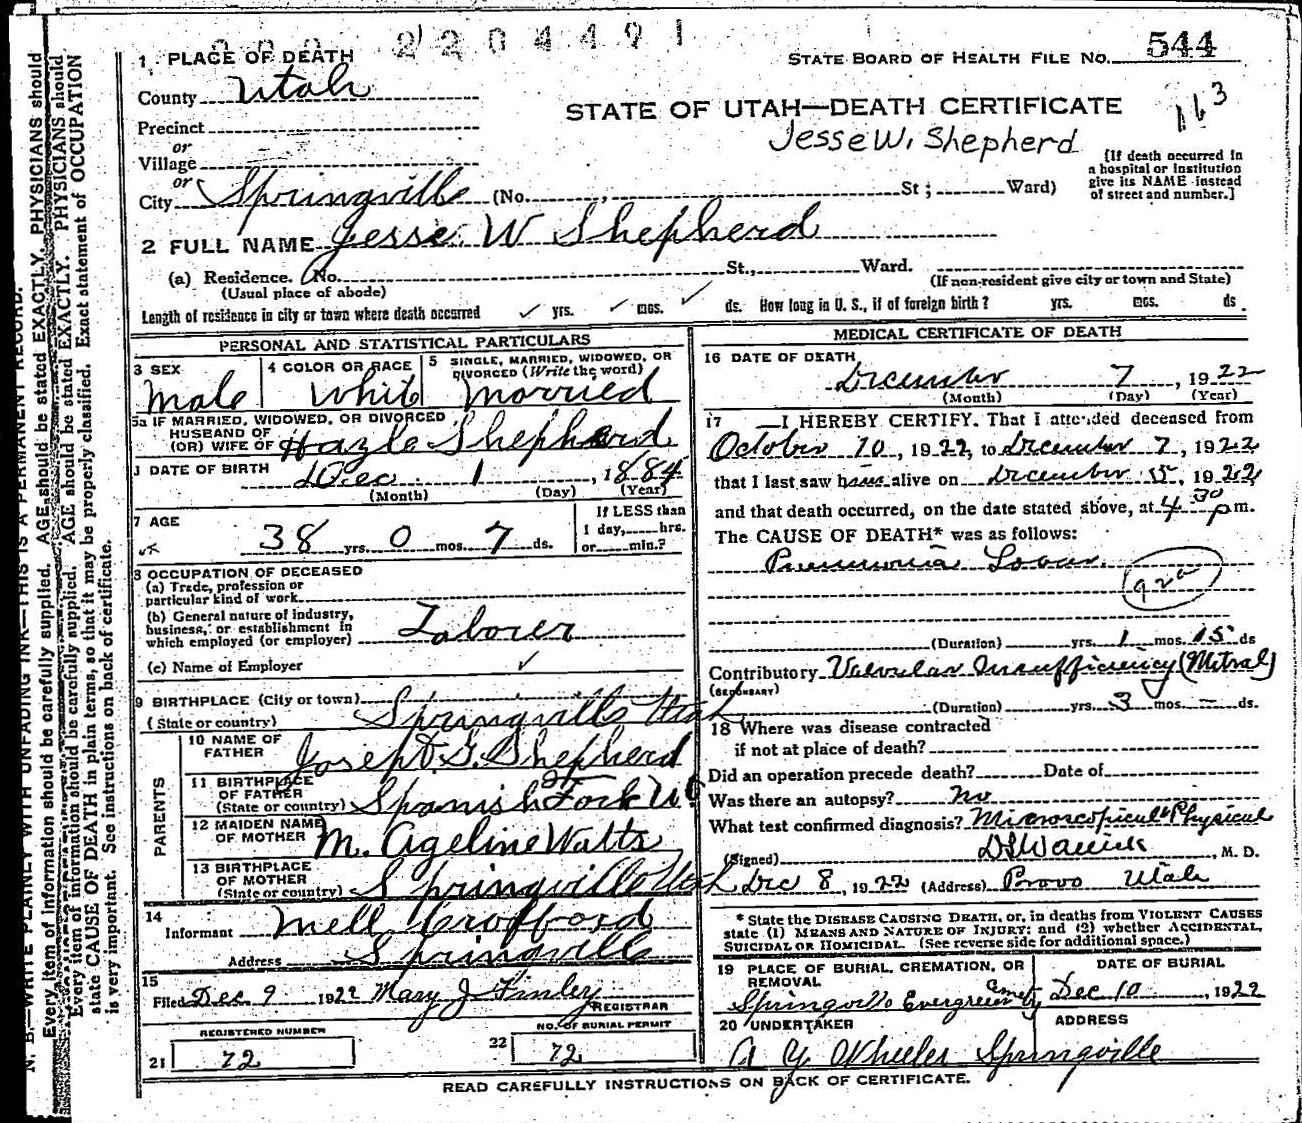 000 2204491
1 PLACE OF DEATH
STATE BOARD OF HEALTH FILE NO. 544
County Utah
STATE OF UTAH—DEATH CERTIFICATE
113
Precinct
or
Village
Jesse W. Shepherd
[If death occurred in
a hospital or institution
give its NAME instead
of street and number.]
or
City Springville (No. , St; Ward)
2 FULL NAME Jesse W Shepherd
(a) Residence. No. St., Ward.
(Usual place of abode) (If non-resident give city or town and State)
Length of residence in city or town where death occurred ✓ yrs. ✓ mos. ✓ ds. How long in U. S., if of foreign birth? yrs. mos. ds.
PERSONAL AND STATISTICAL PARTICULARS
3 SEX
Male
4 COLOR OR RACE
Whit
5 SINGLE, MARRIED, WIDOWED, OR
DIVORCED (Write the word)
Married
5a IF MARRIED, WIDOWED, OR DIVORCED
HUSBAND OF
(OR) WIFE OF Hazle Shepherd
DATE OF BIRTH Dec 1, 1884
(Month) (Day) (Year)
7 AGE
38 yrs. 0 mos. 7 ds.
If LESS than
1 day, hrs.
or min.?
8 OCCUPATION OF DECEASED
(a) Trade, profession or
particular kind of work
(b) General nature of industry,
business, or establishment in
which employed (or employer) Laborer
(c) Name of Employer ✓
9 BIRTHPLACE (City or town)
(State or country) Springville Utah
PARENTS
10 NAME OF
FATHER Joseph G. Shepherd
11 BIRTHPLACE
OF FATHER
(State or country) Spanish Fork Ut
12 MAIDEN NAME
OF MOTHER M. Ageline Watts
13 BIRTHPLACE
OF MOTHER
(State or country) Springville Utah
14
Informant Mell Crofford
Address Springville
15
Filed Dec 9 1922 Mary J Finley
REGISTRAR
REGISTERED NUMBER
21 72
NO. OF BURIAL PERMIT
22 72
MEDICAL CERTIFICATE OF DEATH
16 DATE OF DEATH
December 7, 1922
(Month) (Day) (Year)
17 —I HEREBY CERTIFY, That I attended deceased from
October 10, 1922, to December 7, 1922
that I last saw him alive on December 5, 1922
and that death occurred, on the date stated above, at 4 30 p m.
The CAUSE OF DEATH* was as follows:
Pneumonia Lobar
92a
(Duration) yrs. 1 mos. 15 ds
Contributory Valvular Insufficiency (Mitral)
(SECONDARY)
(Duration) yrs. 3 mos. — ds.
18 Where was disease contracted
if not at place of death?
Did an operation precede death? Date of
Was there an autopsy? no
What test confirmed diagnosis? Microscopical & Physical
(Signed) , M. D.
Dec 8, 1922 (Address) Provo Utah
* State the DISEASE CAUSING DEATH, or, in deaths from VIOLENT CAUSES
state (1) MEANS AND NATURE OF INJURY; and (2) whether ACCIDENTAL,
SUICIDAL or HOMICIDAL. (See reverse side for additional space.)
19 PLACE OF BURIAL, CREMATION, OR
REMOVAL
Springville Evergreen Cmety
DATE OF BURIAL
Dec 10, 1922
20 UNDERTAKER
A Y Wheeler
ADDRESS
Springville
READ CAREFULLY INSTRUCTIONS ON BACK OF CERTIFICATE.
N. B.—WRITE PLAINLY WITH UNFADING INK—THIS IS A PERMANENT RECORD.
Every item of information should be carefully supplied. AGE should be stated EXACTLY. PHYSICIANS should
state CAUSE OF DEATH in plain terms, so that it may be properly classified. Exact statement of OCCUPATION
is very important. See instructions on back of certificate.